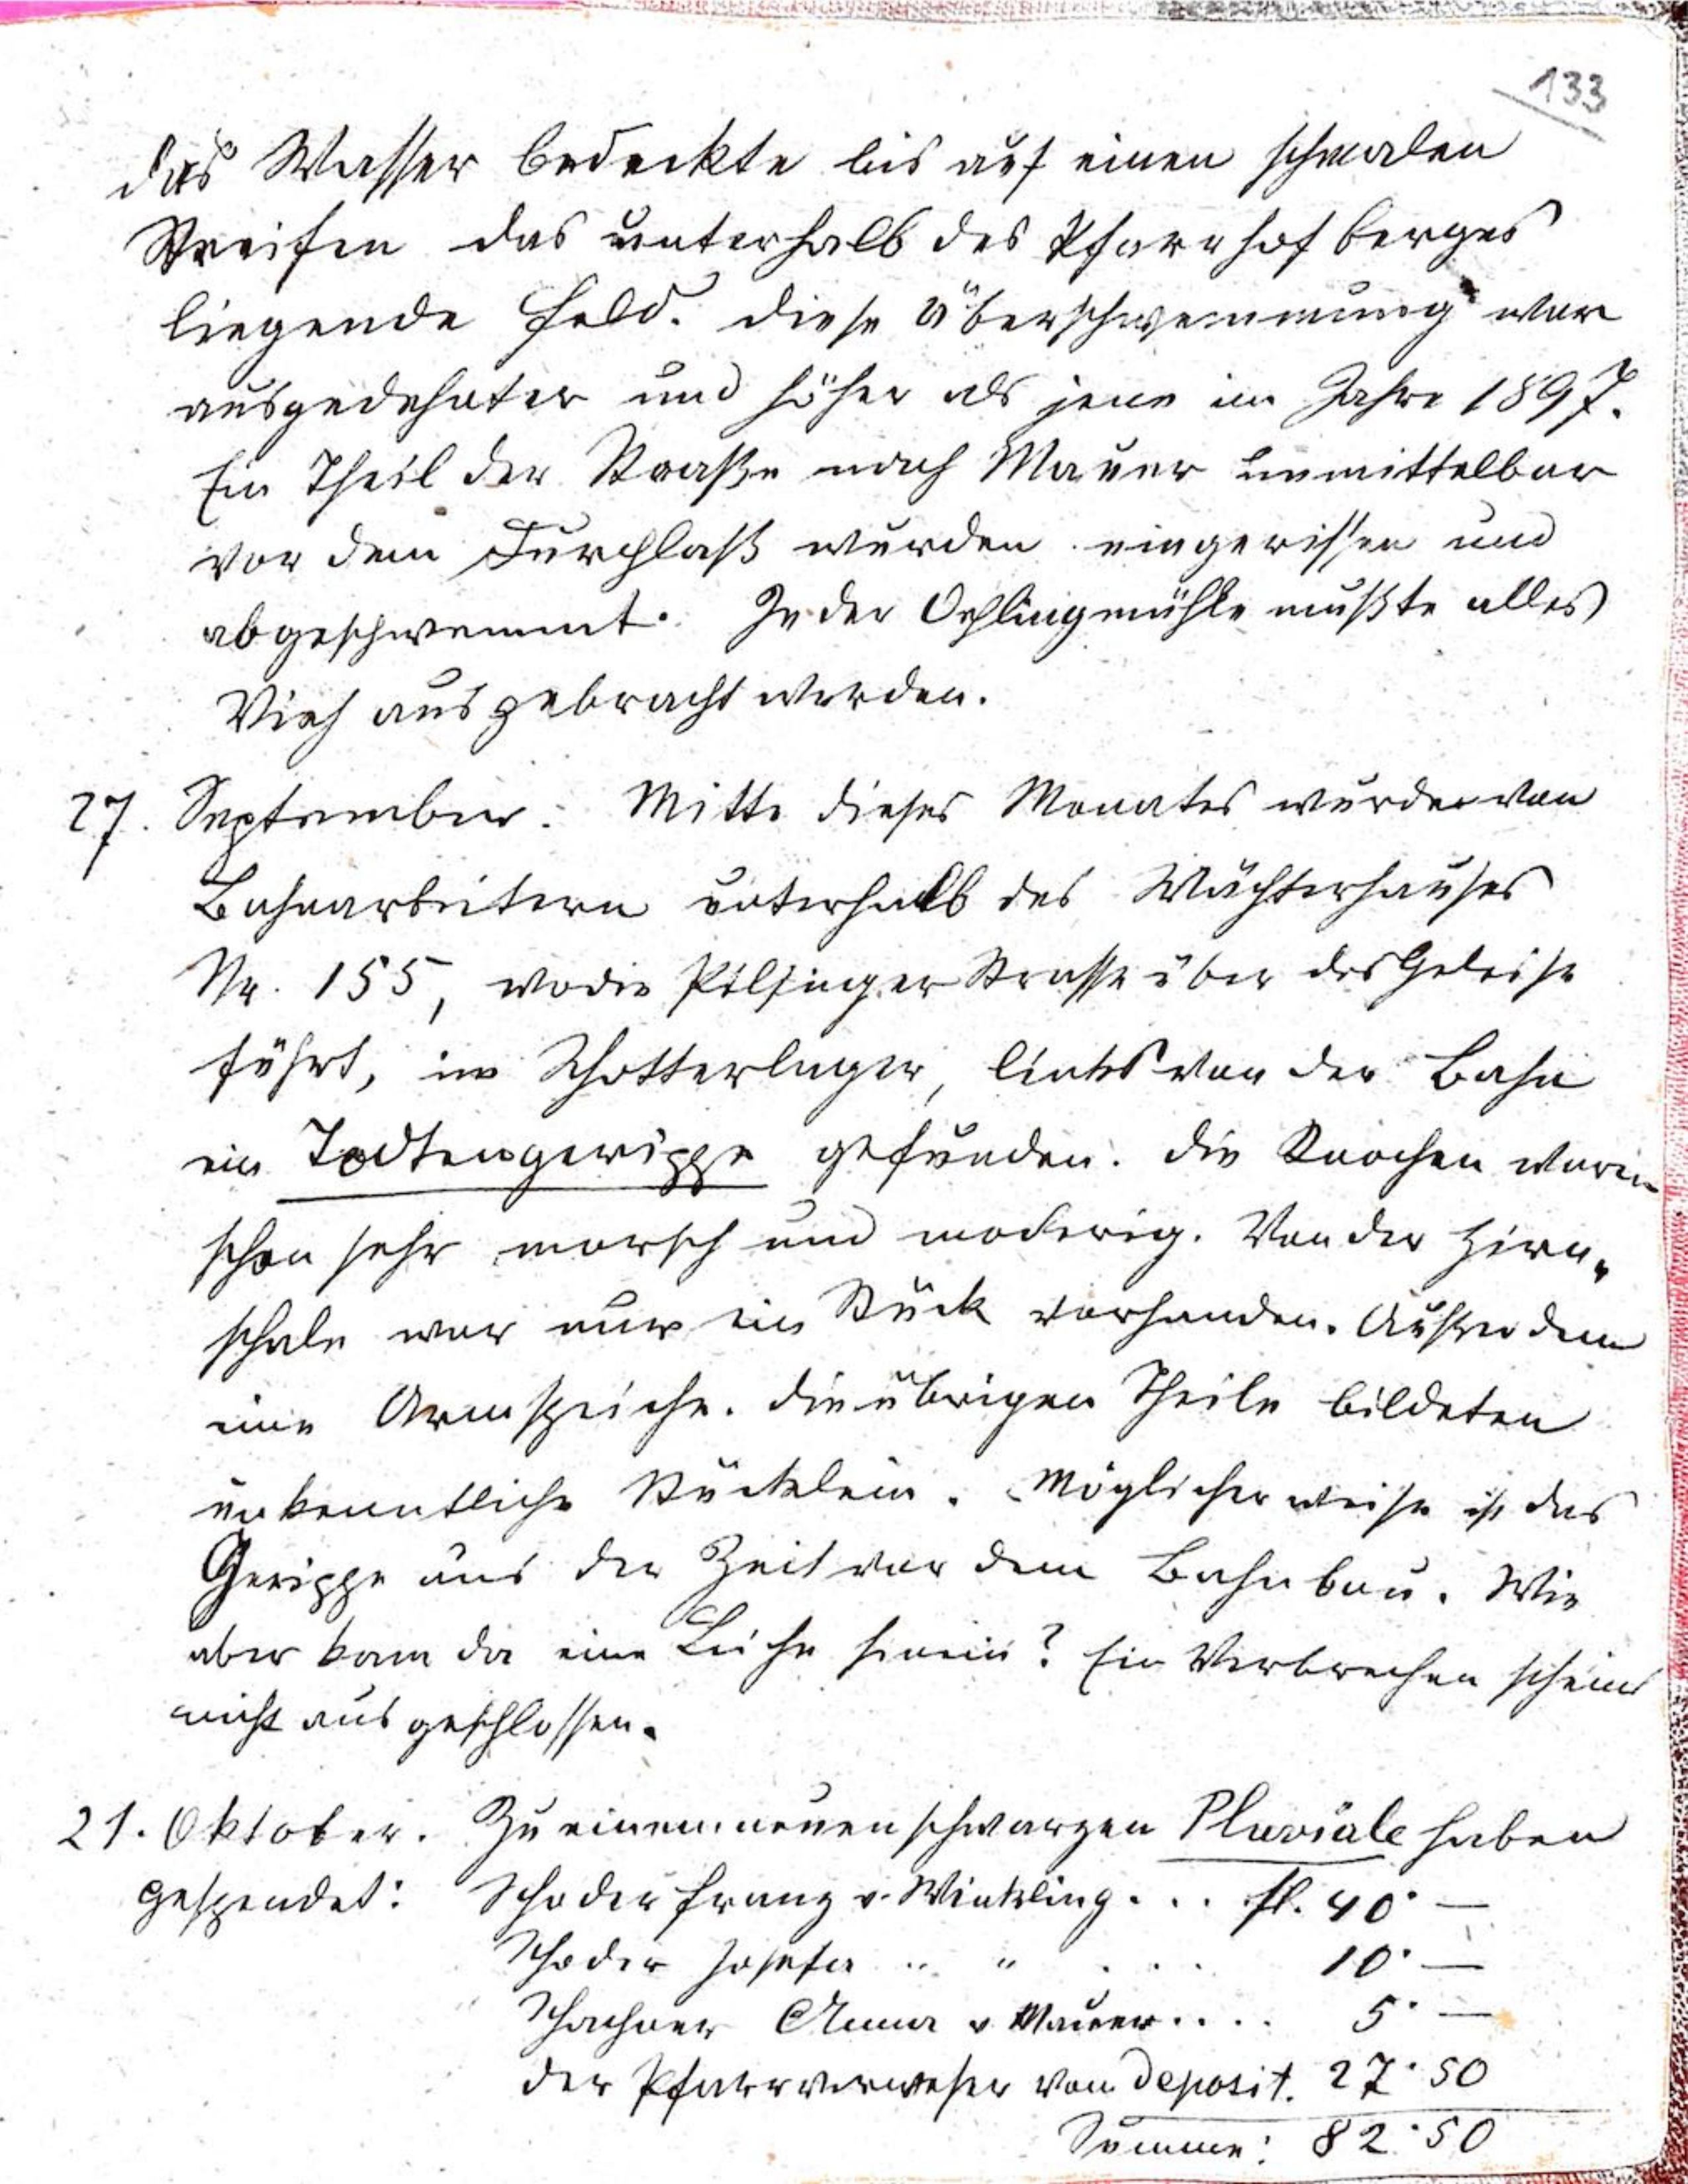 133
das Wasser bedeckte bis auf einen schmalen
Streifen das unterhalb des Pfarrhofberges
liegende Feld. Diese Überschwemmung war
ausgedehnter und höher als jene im Jahre 1897.
Ein Theil der Straße nach Mauer unmittelbar
vor dem Durchlaß wurden eingerissen und
abgeschwemmt. In der Öhlingmühle mußte alles
Vieh ausgebracht werden.
27. September. Mitte dieses Monates wurde von
Bahnarbeitern unterhalb des Wächterhauses
Nr. 155, wo die Pilsinger Strasse über das Geleise
führt, im Schotterlager, links von der Bahn
ein Todtengerippe gefunden. Die Knochen waren
schon sehr morsch und moderig. Von der Hirn-
schale war nur ein Stück vorhanden. Außerdem
eine Armspeiche. Die übrigen Theile bildeten
unkenntliche Stücklein. Möglicherweise ist das
Gerippe aus der Zeit vor dem Bahnbau. Wie
aber kam da eine Leiche hinein? Ein Verbrechen scheint
nicht ausgeschlossen.
21. Oktober. Zu einem neuen schwarzen Pluviale haben
gespendet: Schoder Franz v. Winkling . . . fl. 40·—
Schoder Josefa " " . . . 10·—
Schachner Anna v Mauer . . . . 5·—
der Pfarrverweser vom Deposit. 27·50
Summe: 82·50